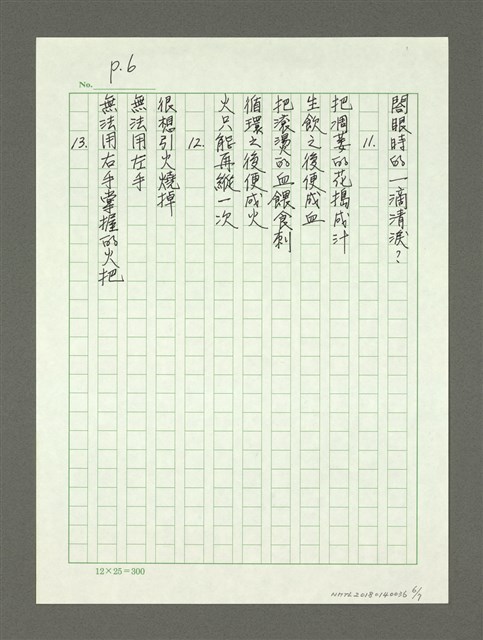 p.6
No.
闔眼時的一滴清淚？
11.
把凋萎的花搗成汁
生飲之後便成血
把滾燙的血餵食刺
循環之後便成火
火只能再縱一次
12.
很想引火燒掉
無法用左手
無法用右手掌握的火把
13.
12×25=300
NMTL20180140036 6/7